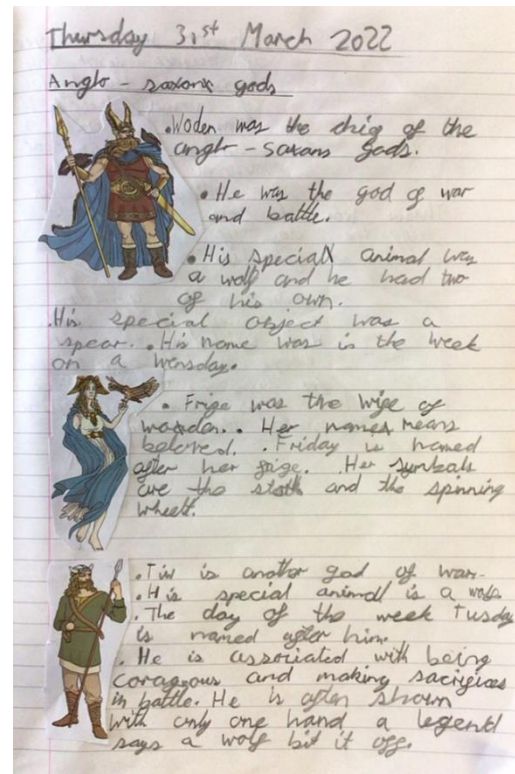 Thursday 31st March 2022
Anglo - saxons gods
• Woden was the chig of the
anglo - saxons gods.
• He was the god of war
and battle.
• His special animal was
a wolf and he had two
of his own.
• His special object was a
spear. • His name was in the week
on a wensday.
• Frige was the wige of
woden. • Her names means
beloved. • Friday is named
after her frige. • Her symbals
are the stalk and the spinning
wheel.
• Tiw is another god of war.
• His special animal is a wolf.
• The day of the week Tusday
is named after him.
• He is associated with being
corageous and making sacrifices
in battle. He is often shown
with only one hand a legend
says a wolf bit it off.